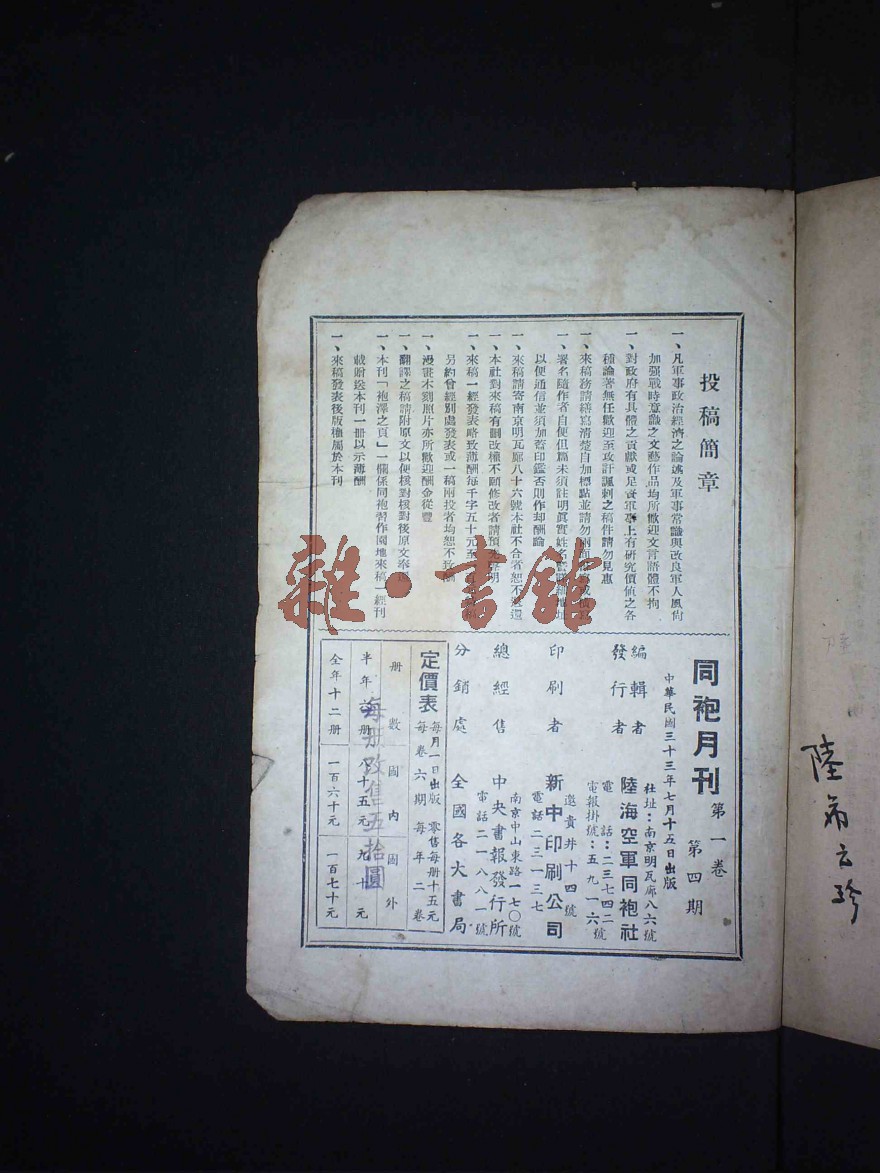 投稿簡章
一、凡軍事政治經濟之論述及軍事常識與改良軍人風尚
加强戰時意識之文藝作品均所歡迎文言語體不拘
一、對政府有具體之貢獻或足資軍事上有研究價値之各
種論著無任歡迎至攻訐諷刺之稿件請勿見惠
一、來稿務請繕寫清楚自加標點並請勿兩面
一、署名隨作者自便但篇末須註明眞實姓名
以便通信並須加蓋印鑑否則作却酬論
一、來稿請寄南京明瓦廊八十六號本社不合者恕不退還
一、本社對來稿有刪改權不願修改者請預先聲明
一、來稿一經發表略致薄酬每千字五十元至
另約曾經別處發表或一稿兩投者均恕不致酬
一、漫畫木刻照片亦所歡迎酬金從豐
一、翻譯之稿請附原文以便核對核對後原文奉還
一、本刊「袍澤之頁」一欄係同袍習作園地來稿一經刊
載贈送本刊一冊以示薄酬
一、來稿發表後版權屬於本刊
同袍月刊 第一卷 第四期
中華民國三十三年七月十五日出版
編輯者
發行者 陸海空軍同袍社
社址：南京明瓦廊八六號
電話：二三七四二
電報掛號：五九一六號
印刷者 新中印刷公司
邀貴井十四號
電話二三一三七
總經售 中央書報發行所
南京中山東路一七〇號
電話二一八八一號
分銷處 全國各大書局
定價表
每月一日出版 零售每册十五元
每卷六期每年二卷
册數 國內 國外
半年六册 八十五元 九十元
全年十二册 一百六十元 一百七十元
每册改售五拾圓
雜·書館
陸